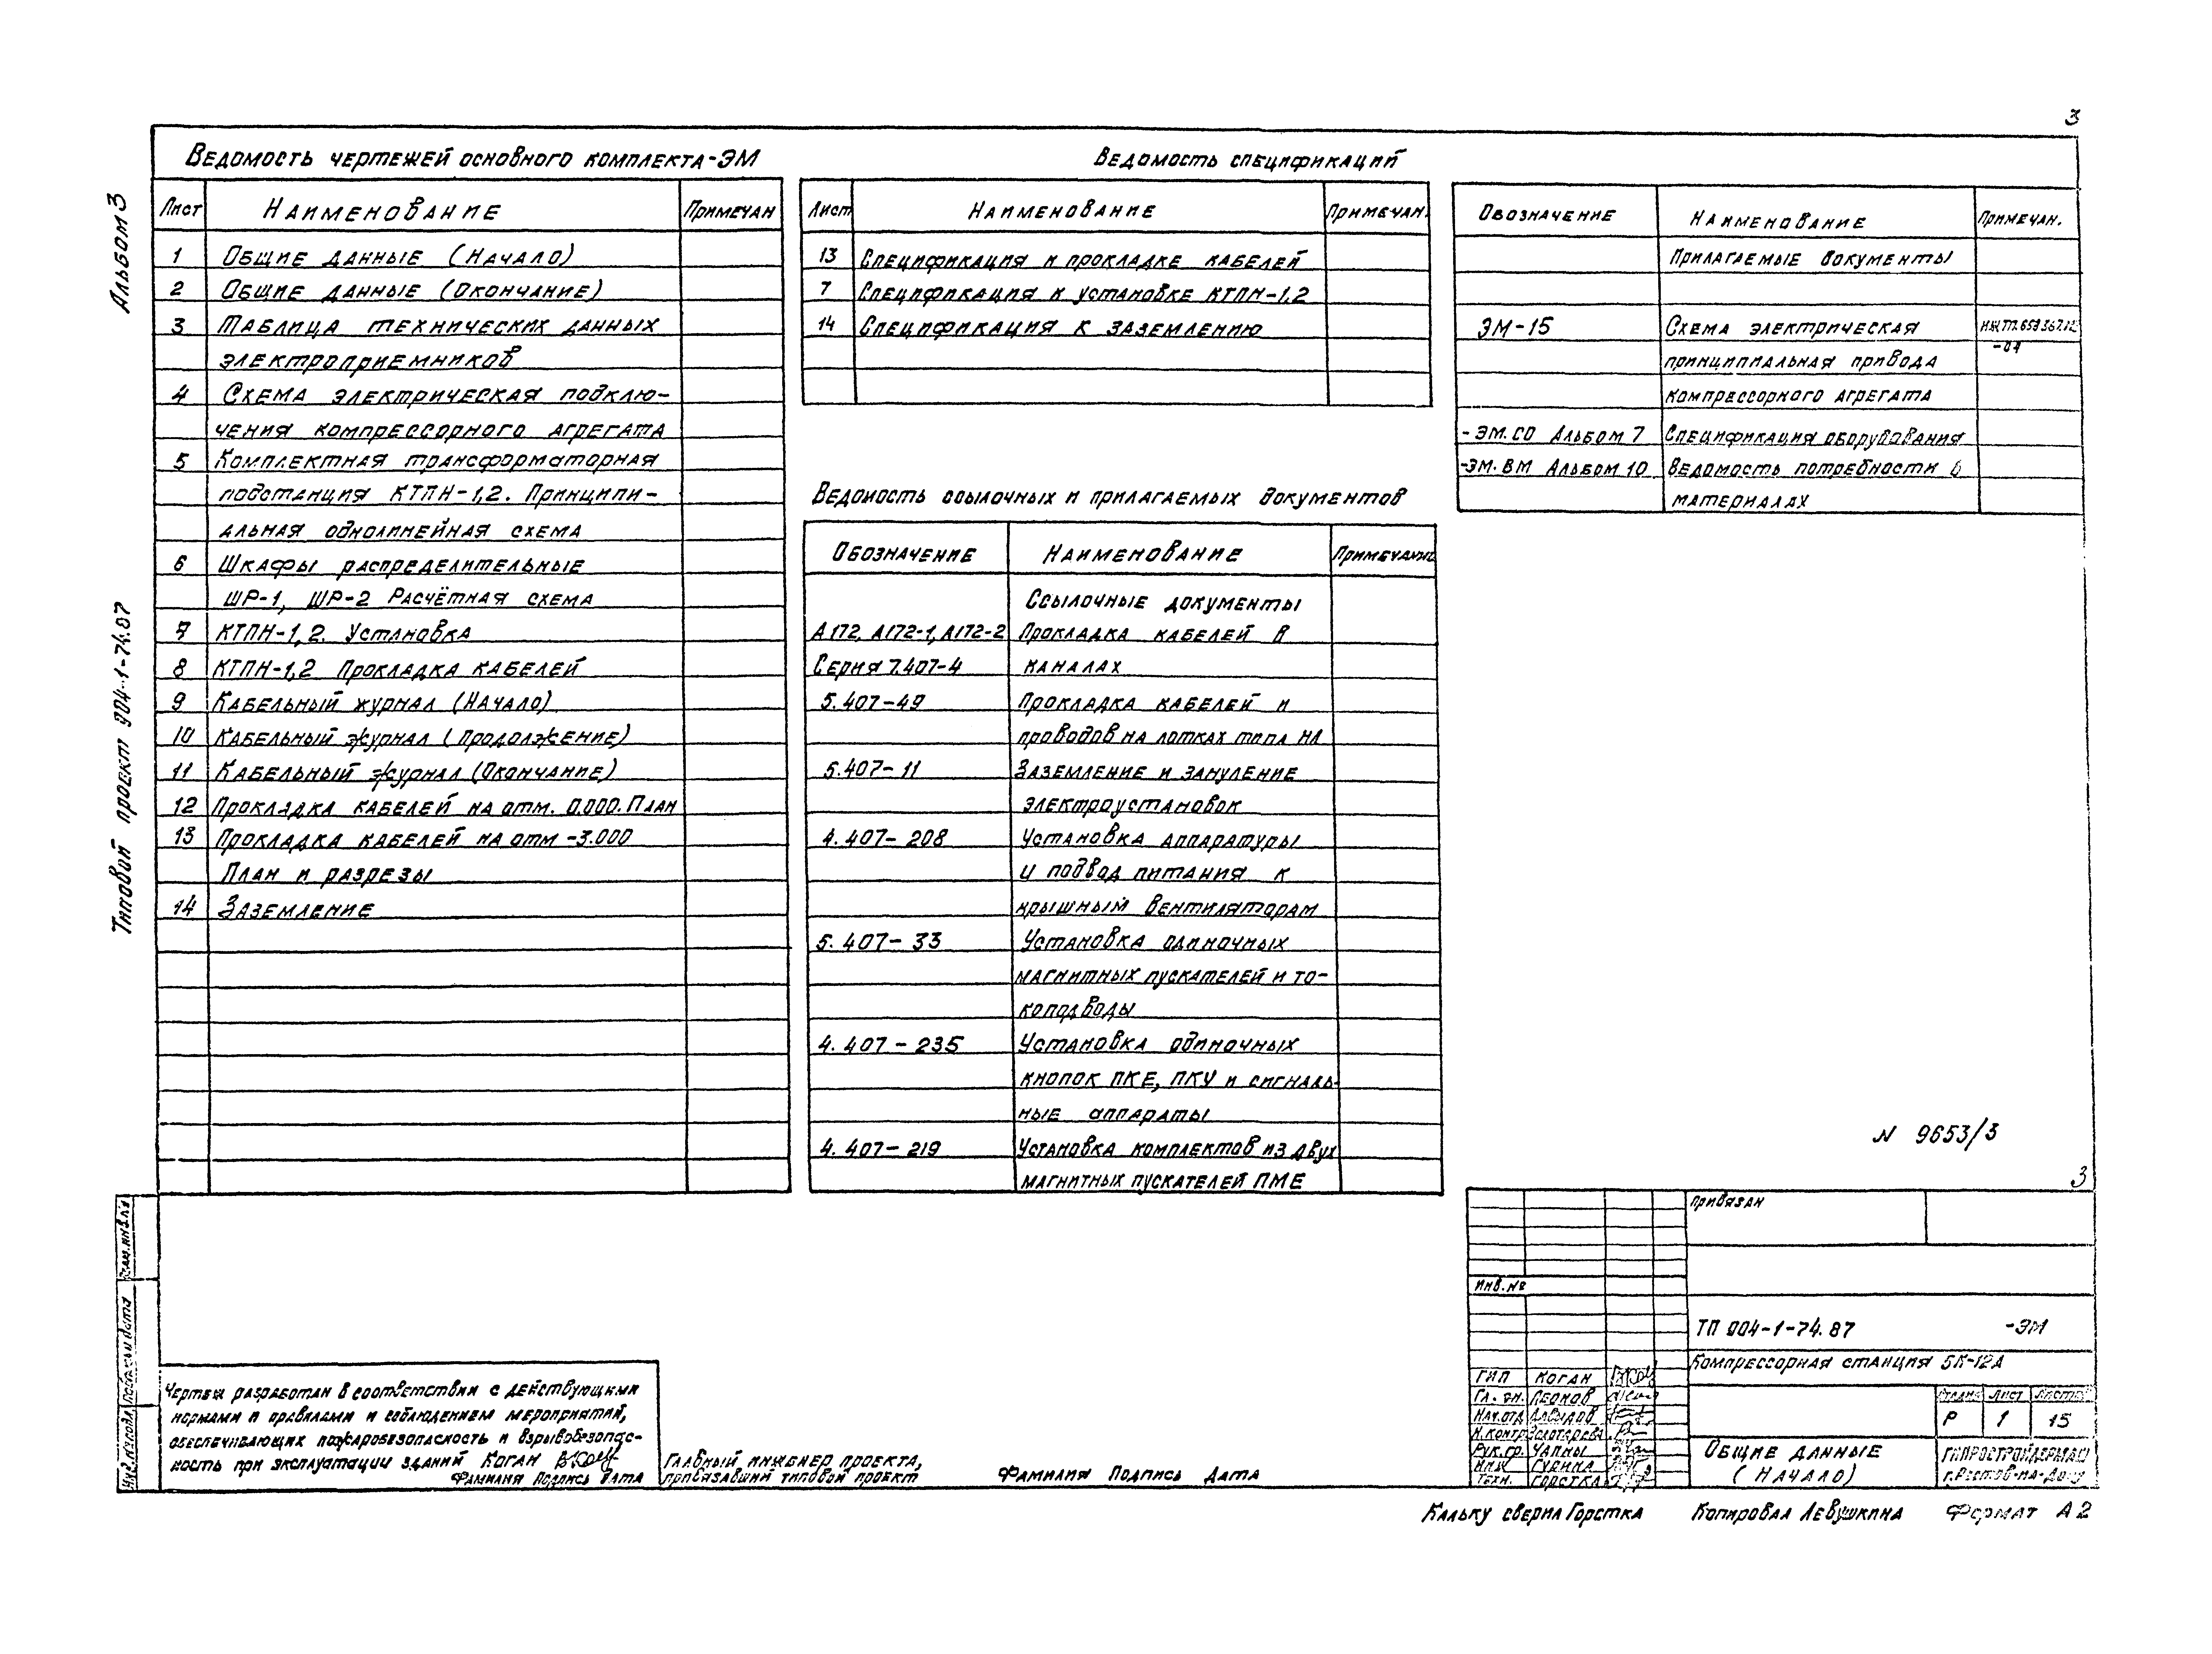 3
Альбом 3
Типовой проект 904-1-74.87
Ведомость чертежей основного комплекта-ЭМ
Лист Наименование Примечан
1 Общие данные (Начало)
2 Общие данные (Окончание)
3 Таблица технических данных
электроприемников
4 Схема электрическая подклю-
чения компрессорного агрегата
5 Комплектная трансформаторная
подстанция КТПН-1,2. Принципи-
альная однолинейная схема
6 Шкафы распределительные
ШР-1, ШР-2 Расчётная схема
7 КТПН-1,2. Установка
8 КТПН-1,2 Прокладка кабелей
9 Кабельный журнал (Начало)
10 Кабельный журнал (Продолжение)
11 Кабельный журнал (Окончание)
12 Прокладка кабелей на отм. 0.000. План
13 Прокладка кабелей на отм -3.000
План и разрезы
14 Заземление
Ведомость спецификаций
Лист Наименование Примечан.
13 Спецификация к прокладке кабелей
7 Спецификация к установке КТПН-1,2
14 Спецификация к заземлению
Ведомость ссылочных и прилагаемых документов
Обозначение Наименование Примечание
Ссылочные документы
А172, А172-1, А172-2 Прокладка кабелей в
Серия 7.407-4 каналах
5.407-49 Прокладка кабелей и
проводов на лотках типа НЛ
5.407-11 Заземление и зануление
электроустановок
4.407-208 Установка аппаратуры
и подвод питания к
крышным вентиляторам
5.407-33 Установка одиночных
магнитных пускателей и то-
коподводы
4.407-235 Установка одиночных
кнопок ПКЕ, ПКУ и сигналь-
ные аппараты
4.407-219 Установка комплектов из двух
магнитных пускателей ПМЕ
Обозначение Наименование Примечан.
Прилагаемые документы
ЭМ-15 Схема электрическая
принципиальная привода
компрессорного агрегата
-ЭМ.СО Альбом 7 Спецификация оборудования
-ЭМ.ВМ Альбом 10 Ведомость потребности в
материалах
N 9653/3
3
Привязан
Инв. №
ТП 904-1-74.87 -ЭМ
Компрессорная станция 5К-12А
ГИП Коган
Нач.отд Давыдов
Н.контр
Рук.гр.
Инж
Техн. Горстка
Стадия Лист Листов
Р 1 15
Общие данные
(Начало)
Гипростройдормаш
г.Ростов-на-Дону
Чертеж разработан в соответствии с действующими
нормами и правилами и соблюдением мероприятий,
обеспечивающих пожаробезопасность и взрывобезопас-
ность при эксплуатации зданий Коган
Фамилия Подпись Дата
Главный инженер проекта,
привязавший типовой проект Фамилия Подпись Дата
Взам.инв.№
Подпись и дата
Инв.№ подл
Кальку сверил Горстка Копировал Левушкина Формат А2